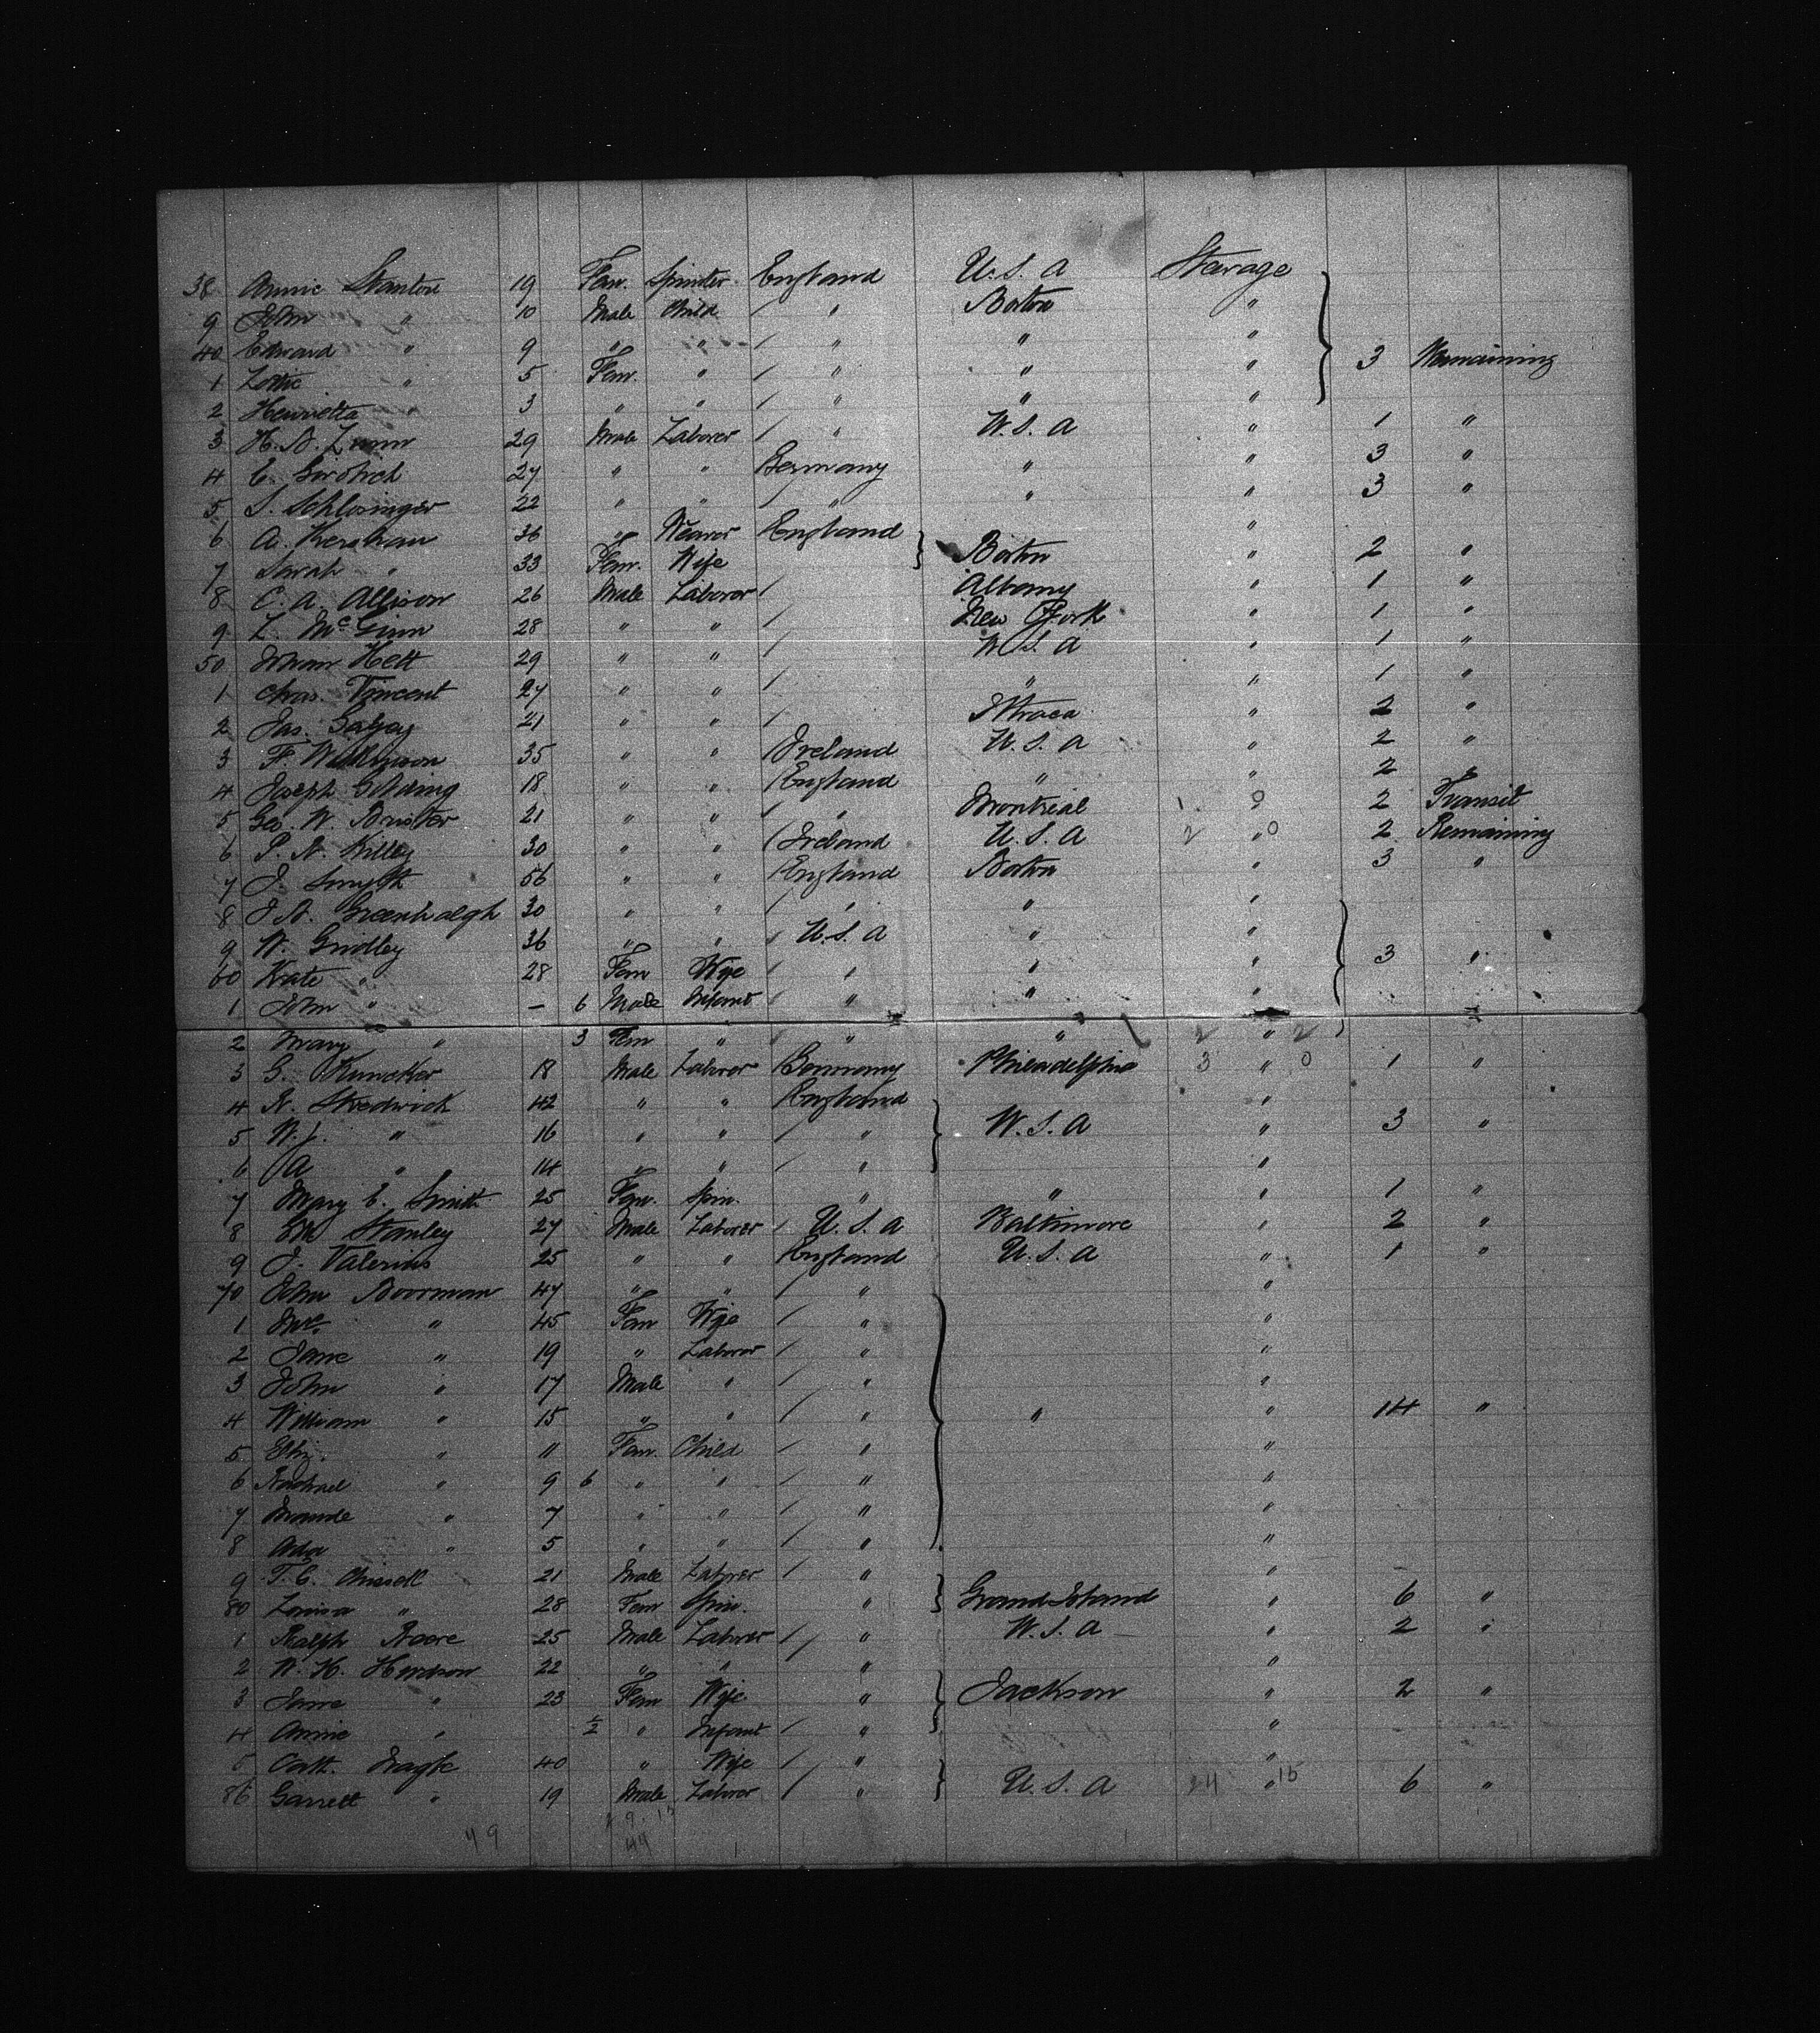 38 Annie Stanton 19 Fem. Spinster England U.S.A Steerage
9 John " 10 Male Child / " Boston "
40 Edward " 9 " " / " " "
1 Lottie " 5 Fem. " / " " " 3 Remaining
2 Henrietta " 3 " " / " " "
3 29 Male Laborer / " U.S.A " 1 "
4 27 " " Germany " " 3 "
5 S. Schlesinger 22 " " / " " " 3 "
6 A. Kershaw 36 " Weaver England "
7 Sarah " 33 Fem. Wife Boston " 2 "
8 C. A. Allison 26 Male Laborer / Albany " 1 "
9 L. McGinn 28 " " / New York " 1 "
50 Hett 29 " " / U.S.A " 1 "
1 Chas. Vincent 27 " " / " " 1 "
2 Jas. 21 " " / Ithaca " 2 "
3 F. Wilkinson 35 " " / Ireland U.S.A " 2 "
4 Joseph Golding 18 " " / England " " 2 "
5 Geo. W. 21 " " / " Montreal 1 " 2 Transit
6 30 " " / Ireland U.S.A 2 " 0 2 Remaining
7 J. Smyth 56 " " / England Boston " 3 "
8 Greenhalgh 30 " " / " " "
9 W. Gridley 36 " " / U.S.A " "
60 Kate " 28 Fem Wife / " " " 3 "
1 John " - 6 Male Infant / " " "
2 Mary " 3 Fem " / " " 2 " 2
3 18 Male Laborer Germany Philadelphia 3 " 0 1 "
4 42 " " England "
5 W. J. " 16 " " / " U.S.A " 3 "
6 A " 14 " " / " "
7 Mary E. Smith 25 Fem. Spin. " " " 1 "
8 Stanley 27 Male Laborer / U.S.A Baltimore " 2 "
9 J. 25 " " England U.S.A " 1 "
70 John Boorman 47 " " / " "
1 Mrs. " 45 Fem Wife / " "
2 Jane " 19 " Laborer / " "
3 John " 17 Male " / " "
4 William " 15 " " / " " " 14 "
5 " 11 Fem. Child / " "
6 Rachael " 9 6 " " / " "
7 Maude " 7 " " / " "
8 Ada " 5 " " / " "
9 T. C. 21 Male Laborer / " "
80 Louisa " 28 Fem Spin. " Grand Island " 6 "
1 Ralph 25 Male Laborer / " U.S.A " 2 "
2 W. H. 22 " " / " "
3 Jane " 23 Fem Wife " Jackson " 2 "
4 Annie " 1/2 " Infant / " "
5 Cath. Nagle 40 " Wife / " "
86 Garrett " 19 Male Laborer / " U.S.A 24 " 15 6 "
49
44